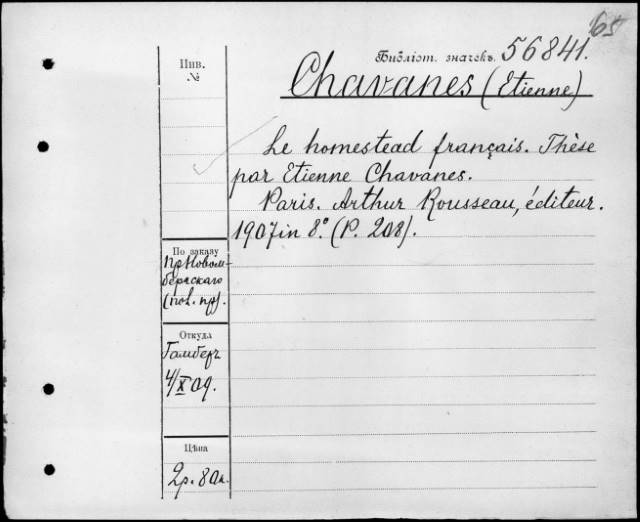 65
Библіот. значекъ 56841.
Инв.
№
Chavanes (Etienne)
Le homestead français. Thèse
par Etienne Chavanes.
Paris. Arthur Rousseau, éditeur.
1907 in 8.° (P. 208).
По заказу
пр. Новом-
бергскаго
(пол. пр).
Откуда
Гамберъ
4/X 09.
Цѣна
2 р. 80 к.